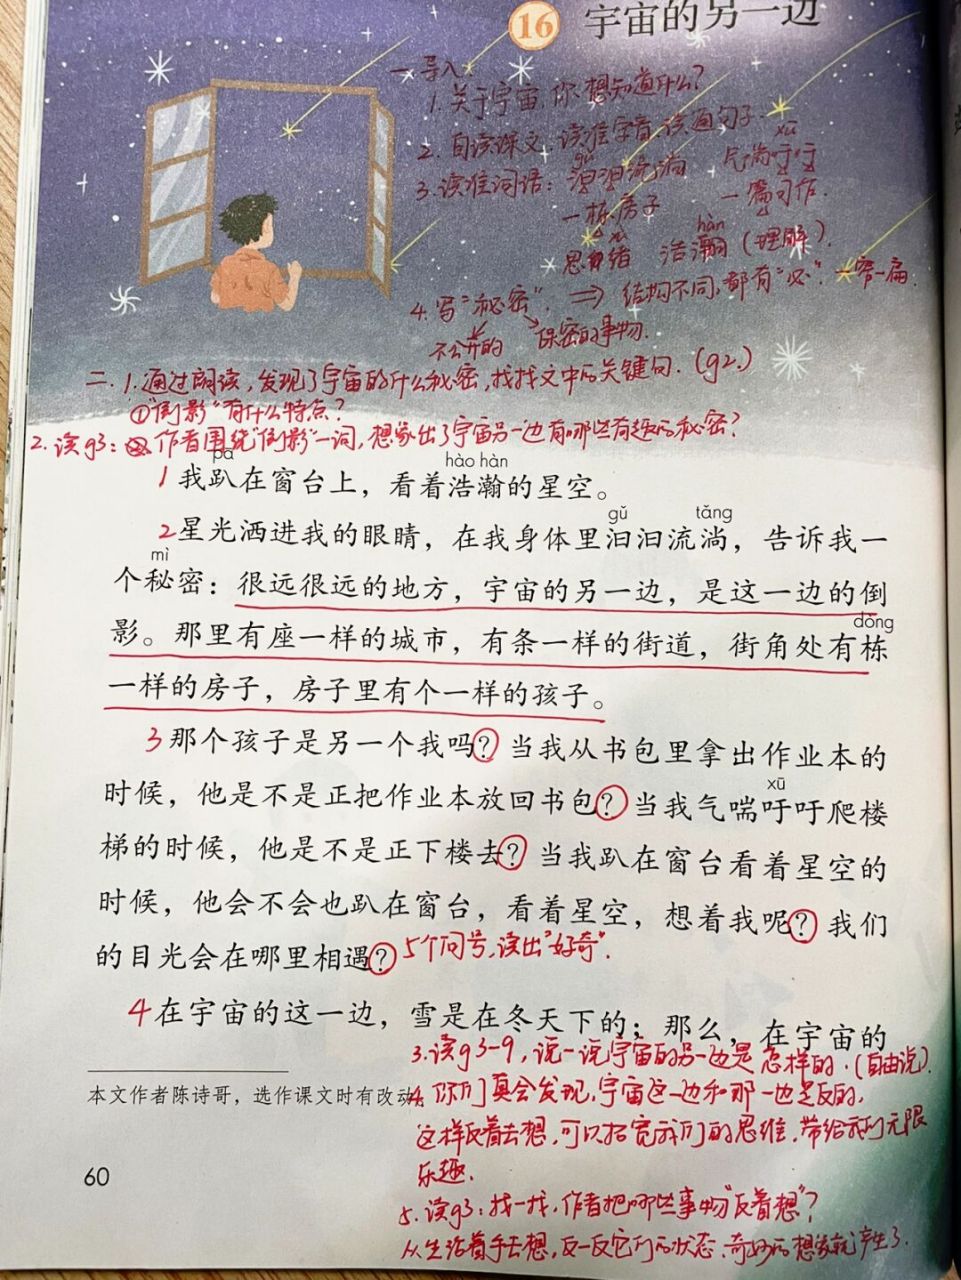 16 宇宙的另一边
一 导入：
1. 关于宇宙，你想知道什么？
2. 自读课文，读准字音，读通句子。
xū
3. 读准词语：汩汩流淌 气喘吁吁
gǔ
一栋房子 一篇习作.
hàn
思绪 浩瀚（理解）.
4. 写“秘密”. ⇒ 结构不同，都有“必”. 一窄一扁.
不公开的 保密的事物.
二. 1. 通过阅读，发现了宇宙的什么秘密，找找文中的关键句. (g2.)
①“倒影”有什么特点？
2. 读g3： 作者围绕“倒影”一词，想象出了宇宙另一边有哪些有趣的秘密？
pā hào hàn
1 我趴在窗台上，看着浩瀚的星空。
gǔ tǎng
2 星光洒进我的眼睛，在我身体里汩汩流淌，告诉我一
mì
个秘密：很远很远的地方，宇宙的另一边，是这一边的倒
dòng
影。那里有座一样的城市，有条一样的街道，街角处有栋
一样的房子，房子里有个一样的孩子。
3 那个孩子是另一个我吗？当我从书包里拿出作业本的
xū
时候，他是不是正把作业本放回书包？当我气喘吁吁爬楼
梯的时候，他是不是正下楼去？当我趴在窗台看着星空的
时候，他会不会也趴在窗台，看着星空，想着我呢？我们
的目光会在哪里相遇？ 5个问号，读出“好奇”.
4 在宇宙的这一边，雪是在冬天下的；那么，在宇宙的
3. 读g3-9，说一说宇宙的另一边是怎样的.（自由说）.
本文作者陈诗哥，选作课文时有改动。
4. 你们真会发现，宇宙这一边和那一边是反的，
这样反着去想，可以拓宽我们的思维，带给我们无限
乐趣.
60
5. 读g3：找一找，作者把哪些事物“反着想”？
从生活着手去想，反一反它们的状态，奇妙的想象就产生了.